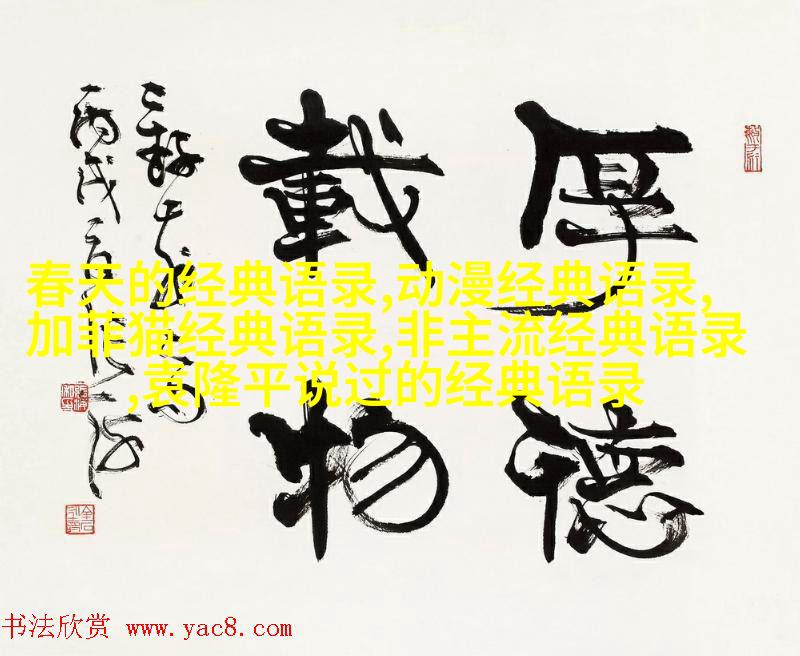 厚德
載物
丙戌
春天的经典语录,动漫经典语录,
加菲猫经典语录,非主流经典语录
,袁隆平说过的经典语录
书法欣赏 www.yac8.com